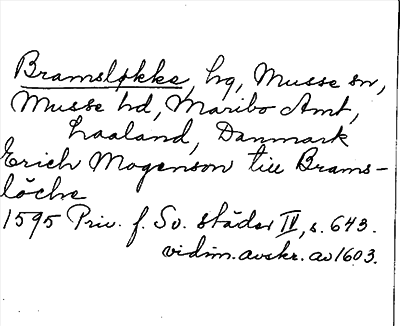 Bramsløkke, hg, Musse sn,
Musse hd, Maribo Amt,
Laaland, Danmark
Erich Mogenson till Brams-
löche
1595 Priv. f. Sv. städer II, s. 643.
vidim. avskr. av 1603.